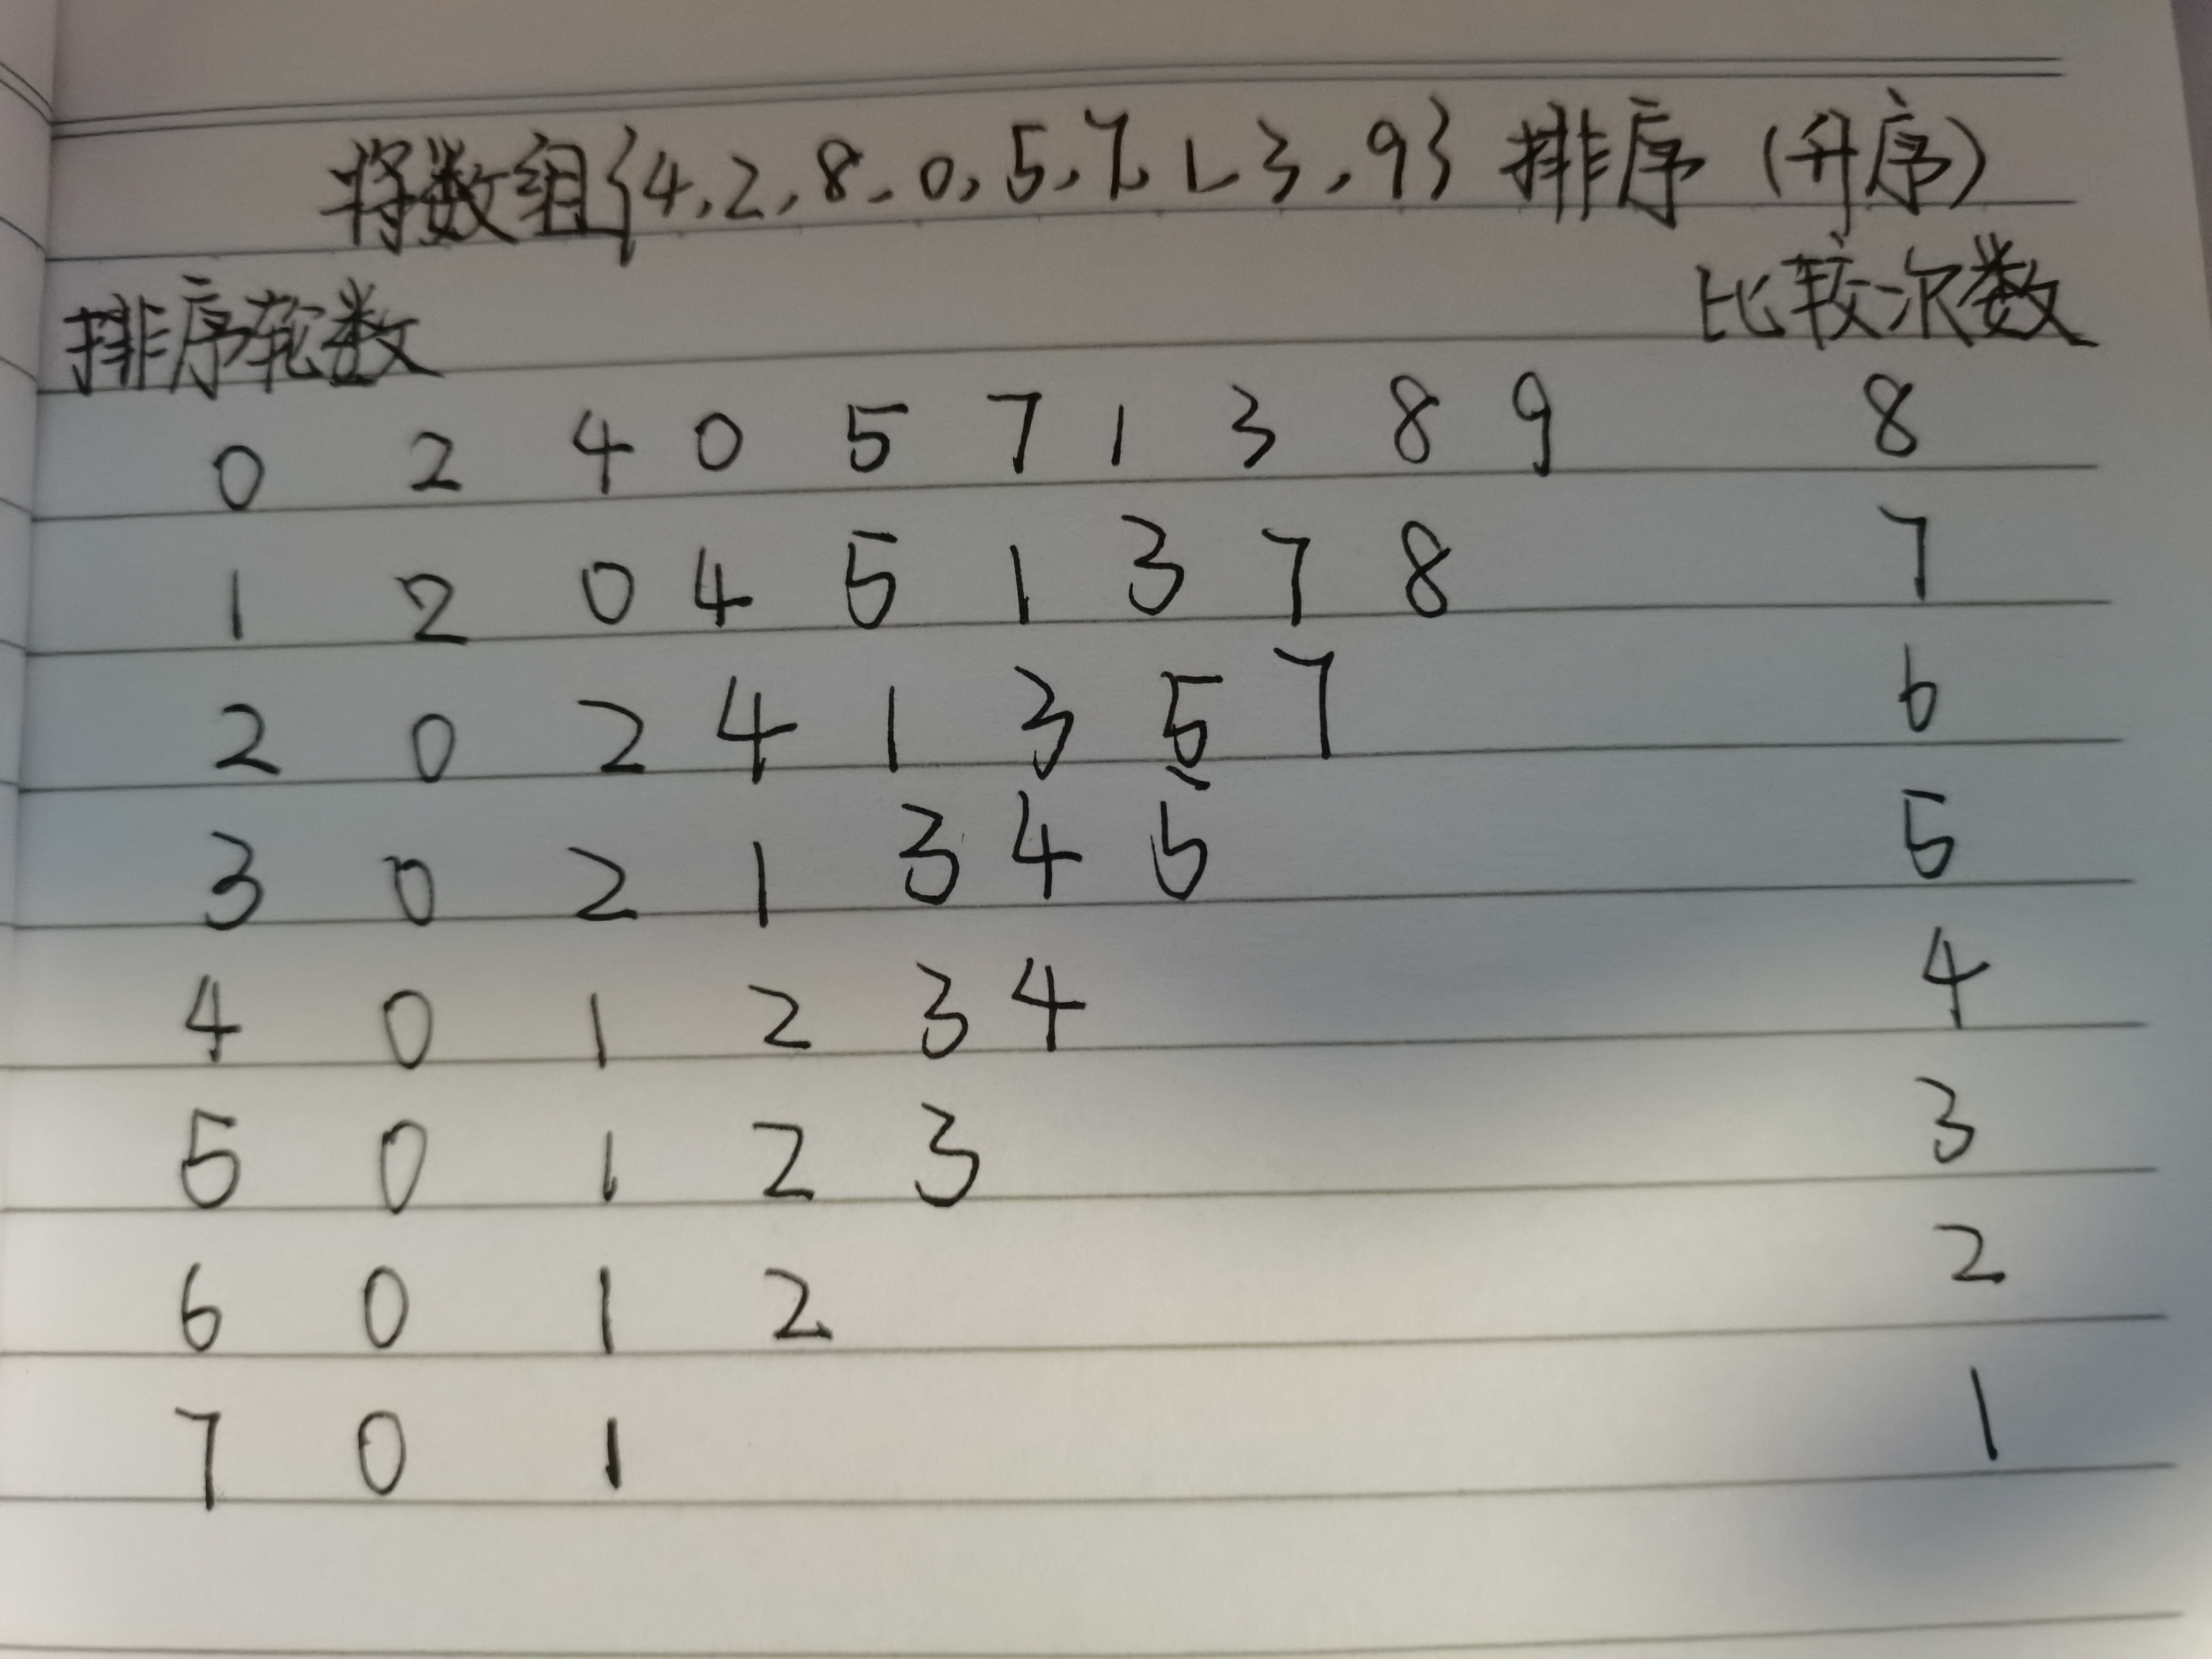 将数组{4,2,8,0,5,7,1,3,9}排序(升序)
排序轮数 比较次数
0 2 4 0 5 7 1 3 8 9 8
1 2 0 4 5 1 3 7 8 7
2 0 2 4 1 3 5 7 6
3 0 2 1 3 4 5 5
4 0 1 2 3 4 4
5 0 1 2 3 3
6 0 1 2 2
7 0 1 1